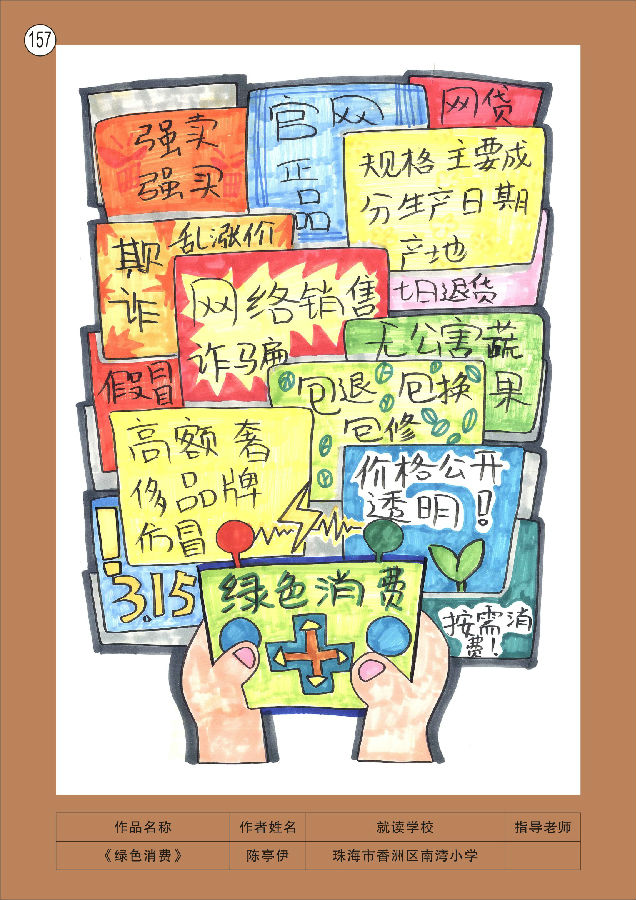 157
强卖
强买
官网
正品
网贷
规格主要成
分生产日期
产地
欺
诈
乱涨价
网络销售
诈骗
七日退货
无公害蔬
果
假冒
包退 包换
包修
高额奢
侈品牌
仿冒
价格公开
透明!
!
3.15
绿色消费
按需消
费!
作品名称 作者姓名 就读学校 指导老师
《绿色消费》 陈亭伊 珠海市香洲区南湾小学